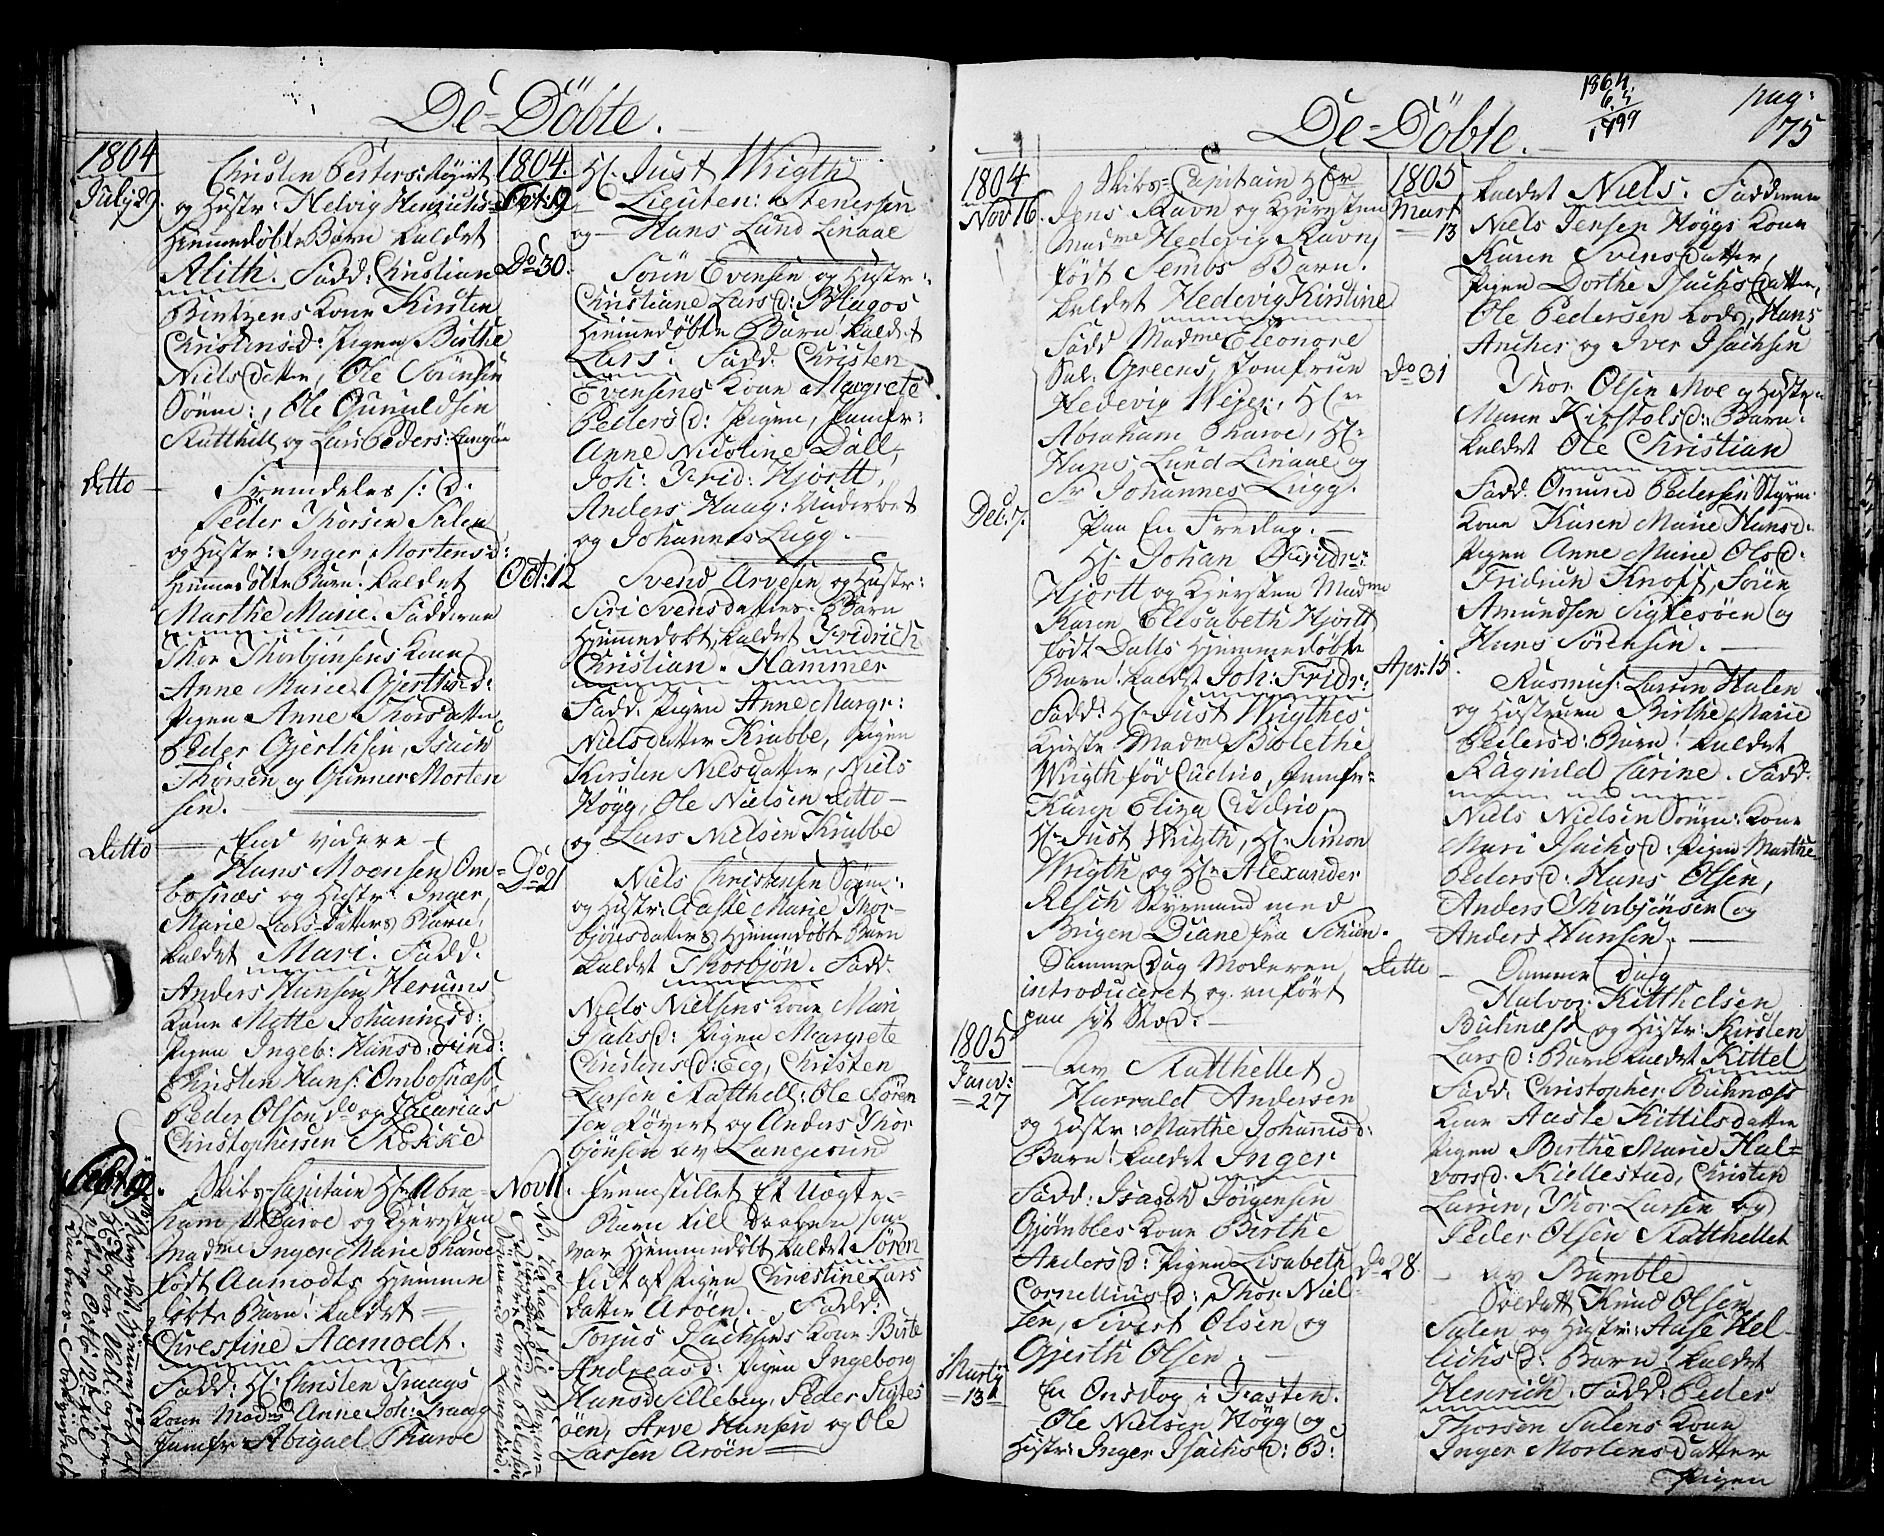 De-Döbte.
1804
July 29.
Christen Peders: Røyert
og Hustr: Helvig Henrichs-
Hiemmedøbte Barn kaldet
Alith. Fadd: Christian
Bintzens Kone Kirsten
Christensd: Pigen Birthe
Nielsdatter, Ole Sørensen
Sønne:, Ole Gunuldsen
Katthill og Lars Peders: Langøe
ditto
Fremdeles
Peder Thorsen Salen
og Hustr: Inger Mortensd:
Hiemmedøbte Barn! kaldet
Marthe Marie. Fadderne
Thor Thorbjønsens Kone
Anne Marie Gierthsd:
Pigen Anne Thorsdatter
Peder Gjerthsen, Isach
Thorsen og Gunner Morten
sen.
Ditto
End videre
Hans Moensen Om-
bosnæs og Hustr: Inger
Marie Larsdatters Barn,
kaldet Mari. Fadd.
Anders Hansen Herums
Kone Mette Johannisd:
Pigen Ingeb: Hansd:
Christen Hans: Ombosnæss
Peder Olsen do og Zacarias
Christophersen Kokke
Skibs-Capitain Hr Abra-
ham Thawe og Kjæresten
Madme Inger Marie Thawe
født Aamodts Hiemme
døbte Barn! kaldet
Chrestine Aamodt.
Fadd: Hr Christen Traags
Kone Madme Anne Joh: Traag
Jomfr: Abigael Thawe
1804.
Oct: 19
Hr Just Wrigth
Lieuten: Stenersen
og Hans Lund Linaae
Do 30.
Søren Evensen og Hustr:
Christiane Larsd: Blagos
Hiemmedøbte Barn kaldet
Lars. Fadd. Christen
Evensens Kone Margrete
Pedersd: Pigen, Jomfr:
Anne Nicoline Dall,
Joh: Frid: Hjortt,
Anders Haag: Underbet
og Johannes Lugg.
Oct: 12
Svend Arvesen og Hustr:
Siri Svensdatters Barn
Hjemmedøbt, kaldet Fridrich
Christian Hammer
Fadd. Pigen Anne Margr:
Nielsdatter Krabbe, Pigen
Kirsten Nilsdatter, Niels
Høyg, Ole Nielsen ditto
og Lars Nielsen Krabbe
Do 21
Niels Christensen Sønne:
og Hustr: Aaste Marie Thor-
bjønsdatters Hiemmedøbte Barn
kaldet Thorbjøn. Fadd.
Niels Nielsens Kone Mari
Isachsd: Pigen Margrete
Christensd: Eeg, Christen
Larsen Katthell: Ole Søren
sen Røyert og Anders Thor
bjønsen av Langesund
Nov 11.
Fremstillet Et Uægte-
Barn till daaben som
var Hjemmedøbt kaldet Søren
født af Pigen Chrestine Lars
datter Arøen. Fadd:
Torjus Isachsens Kone Birte
Andreasd: Pigen Ingeborg
Hansd Silleben, Peder Sigtes
øen, Arve Hansen og Ole
Larsen Arøen
De-Döbte.
1864.
6.5
1799
pag:
75
1804
Nov 16.
Skibs-Capitain Hr
Jens Ravn og Kjæresten
Madme Hedevig Ravn,
født Sembs Barn.
kaldet Hedevig Kirstine
Fadd Madme Eleonore
Sal: Greens, Jomfruen
Hedevig Weyer, Hr
Abraham Thawe, Hr
Hans Lund Linaae og
Sr Johannes Lugg.
Dec: 7.
Paa En Fredag.
Hr Johan Fridr:
Hjortt og Kjæresten Madme
Karen Elisabeth Hjortt
født Dalls Hjemmedøbte
Barn! kaldet Joh: Fridr:
Fadd: Hr Just Wrigthes
Kjæreste Madme Bolethe
Wrigth fød Cudrio, Jomfr:
Karen Eliza Cudrio
Hr Just Wrigth, Hr Simon
Wrigth og Hr Alexander
Resch Styrmand med
Brigen Diane fra Schien.
Samme Dag Moderen
introduceret og anført
paa sit Stæd.
1805
Janv:
27
Av Katthellet
Harrald Andersen
og Hustr: Marthe Johannisd:
Barn: kaldet Inger
Fadd: Isaach Jörgensen
Gjömbles Kone Birthe
Andersd: Pigen Lisabeth
Corneliusd: Thor Niel-
sen, Sivert Olsen og
Gjerth Olsen.
Martij
13
En Onsdag i Fasten.
Ole Nielsen Høyg og
Hustr: Inger Isachsd: B:
1805
Mart
13
kaldet Niels. Fadderne
Niels Jensen Høygs Kone
Karen Svensdatter,
Pigen Dorthe Isachsdatter,
Ole Pedersen Lods, Hans
Ancher og Iver Isachsen
Do 31
Thor Olsen Moe og Hustr
Maren Kirstolsd: Barn.
kaldet Ole Christian
Fadd. Omund Pedersen Styrm
Kone Karen Marie Hansd.
Pigen Anne Marie Olsd.
Fridrich Knoff, Søren
Amundsen Sigtesøen og
Hans Sørensen.
Apr: 15.
Rasmus Larsen Halen
og Hustruen Birthe Marie
Pedersd: Barn! kaldet
Ragnild Carine. Fadd.
Niels Nielsen Sønne: Kone
Mari Isachsd: Pigen Marthe
Pedersd: Hans Olsen,
Anders Thorbjönsen og
Anders Hansen.
Ditto
Samme Dag
Halvor Kitthelsen
Buhnæss og Hustr: Kirsten
Larsd: Barn kaldet Kittel
Fadd: Christopher Buhnæss
Kone Aaste Kittilsdatter
Pigen Birthe Marie Hal-
vorsd. Killestad, Christen
Larsen, Thor Larsen og
Peder Olsen Katthellet
Do 28.
Av Bamble
Soldatt Knud Olsen
Salen og Hustr: Aase Hel-
lichsd: Barn: kaldet
Henrich. Fadd: Peder
Thorsen Salens Kone
Inger Mortensdatter
Pigen